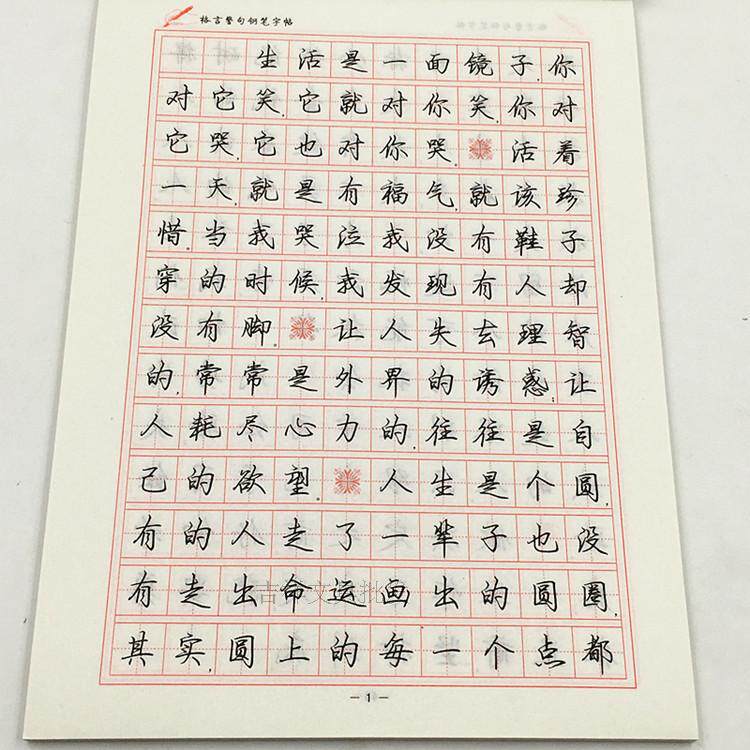 格言警句钢笔字帖
生活是一面镜子,你
对它笑,它就对你笑,你对
它哭,它也对你哭。活着
一天,就是有福气,就该珍
惜。当我哭泣我没有鞋子
穿的时候,我发现有人却
没有脚。让人失去理智
的,常常是外界的诱惑;让
人耗尽心力的,往往是自
己的欲望。人生是个圆,
有的人走了一辈子也没
有走出命运画出的圆圈,
其实,圆上的每一个点都
— 1 —